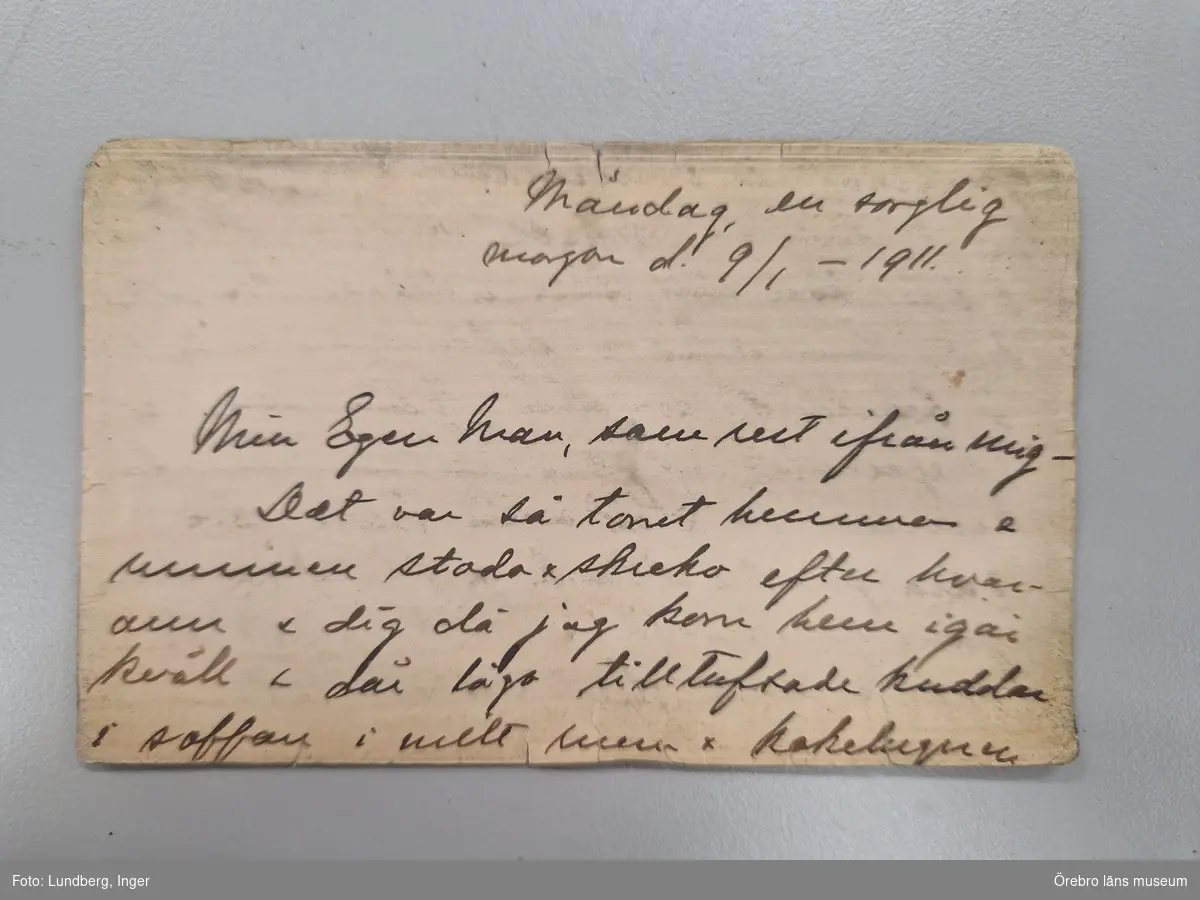 Måndag, en sorglig
morgon d. 9/1 – 1911.
Min Egen Man, som rest ifrån mig –
Det var så tomt hemma
rummen stodo x skreko efter hvar-
ann x dig då jag kom hem igår
kväll x där lågo tilltufsade kuddar
i soffan i mitt rum x kakelugnen
Foto: Lundberg, Inger
Örebro läns museum